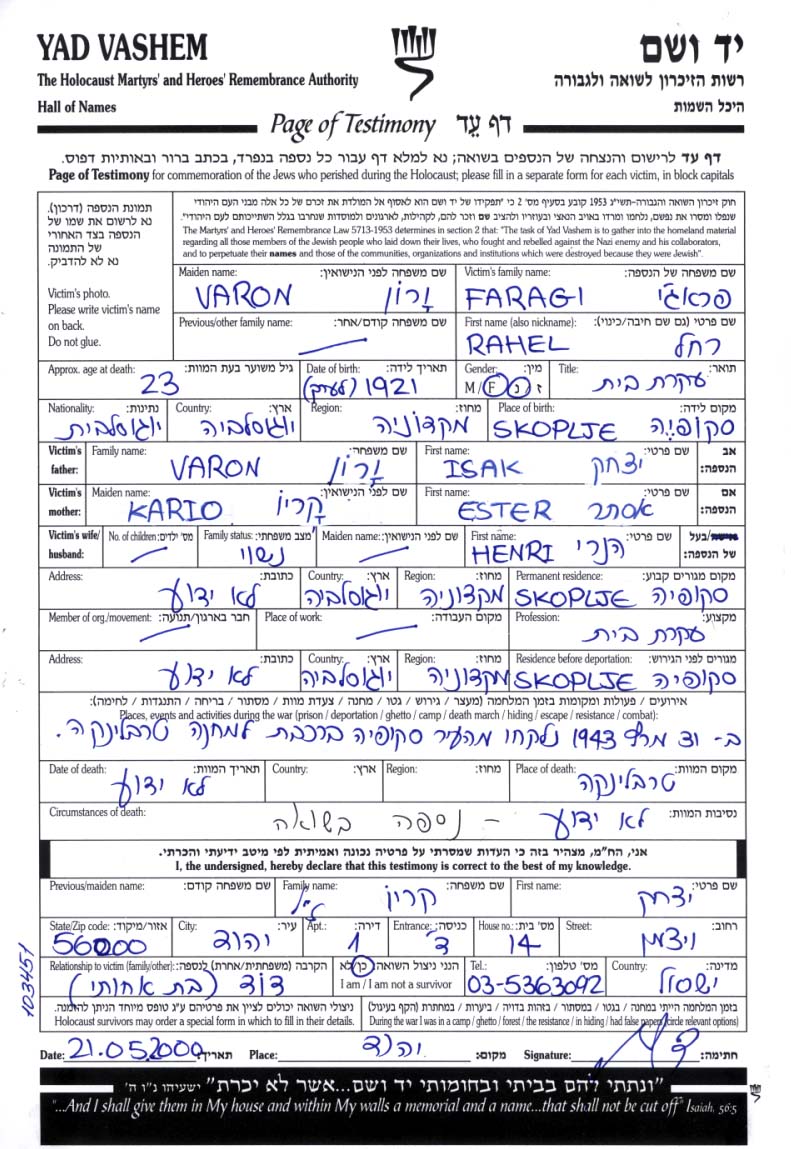 YAD VASHEM
יד ושם
The Holocaust Martyrs' and Heroes' Remembrance Authority
רשות הזיכרון לשואה ולגבורה
Hall of Names
היכל השמות
Page of Testimony דף עֵד
דף עד לרישום והנצחה של הנספים בשואה; נא למלא דף עבור כל נספה בנפרד, בכתב ברור ובאותיות דפוס.
Page of Testimony for commemoration of the Jews who perished during the Holocaust; please fill in a separate form for each victim, in block capitals
תמונת הנספה (דרכון).
נא לרשום את שמו של
הנספה בצד האחורי
של התמונה
נא לא להדביק.
Victim's photo.
Please write victim's name
on back.
Do not glue.
חוק זיכרון השואה והגבורה-תשי"ג 1953 קובע בסעיף מס' 2 כי "תפקידו של יד ושם הוא לאסוף אל המולדת את זכרם של כל אלה מבני העם היהודי
שנפלו ומסרו את נפשם, נלחמו ומרדו באויב הנאצי ובעוזריו ולהציב שם וזכר להם, לקהילות, לארגונים ולמוסדות שנחרבו בגלל השתייכותם לעם היהודי".
The Martyrs' and Heroes' Remembrance Law 5713-1953 determines in section 2 that: "The task of Yad Vashem is to gather into the homeland material
regarding all those members of the Jewish people who laid down their lives, who fought and rebelled against the Nazi enemy and his collaborators,
and to perpetuate their names and those of the communities, organizations and institutions which were destroyed because they were Jewish".
Maiden name: שם משפחה לפני הנישואין: Victim's family name: שם משפחה של הנספה:
VARON וָרוֹן FARAGI פראג'י
Previous/other family name: שם משפחה קודם/אחר: First name (also nickname): שם פרטי (גם שם חיבה/כינוי):
RAHEL רחל
Approx. age at death: גיל משוער בעת המוות: Date of birth: תאריך לידה: Gender: מין: Title: תואר:
23 1921 (לערך) M / F ז / נ עקרת בית
Nationality: נתינות: Country: ארץ: Region: מחוז: Place of birth: מקום לידה:
יוגוסלבית יוגוסלביה מקדוניה SKOPLJE סקופיה
Victim's father: Family name: שם משפחה: First name: שם פרטי: אב הנספה:
VARON וָרוֹן ISAK יצחק
Victim's mother: Maiden name: שם לפני הנישואין: First name: שם פרטי: אם הנספה:
KARIO קָריוֹ ESTER אסתר
Victim's wife/ husband: No. of children: מס' ילדים: Family status: מצב משפחתי: Maiden name: שם לפני הנישואין: First name: שם פרטי: אשת/בעל של הנספה:
נשוי HENRI הנרי
Address: כתובת: Country: ארץ: Region: מחוז: Permanent residence: מקום מגורים קבוע:
לא ידוע יוגוסלביה מקדוניה SKOPLJE סקופיה
Member of org./movement: חבר בארגון/תנועה: Place of work: מקום העבודה: Profession: מקצוע:
עקרת בית
Address: כתובת: Country: ארץ: Region: מחוז: Residence before deportation: מגורים לפני הגירוש:
לא ידוע יוגוסלביה מקדוניה SKOPLJE סקופיה
אירועים / פעולות ומקומות בזמן המלחמה (מעצר / גירוש / גטו / מחנה / צעדת מוות / מסתור / בריחה / התנגדות / לחימה):
Places, events and activities during the war (prison / deportation / ghetto / camp / death march / hiding / escape / resistance / combat):
ב- 31 מרץ 1943 נלקחו מהעיר סקופיה ברכבת למחנה טרבלינקה.
Date of death: תאריך המוות: Country: ארץ: Region: מחוז: Place of death: מקום המוות:
לא ידוע טרבלינקה
Circumstances of death: נסיבות המוות:
לא ידוע - נספה בשואה
אני, הח"מ, מצהיר בזה כי העדות שמסרתי על פרטיה נכונה ואמיתית לפי מיטב ידיעתי והכרתי.
I, the undersigned, hereby declare that this testimony is correct to the best of my knowledge.
Previous/maiden name: שם משפחה קודם: Family name: שם משפחה: First name: שם פרטי:
קריו יצחק
State/Zip code: אזור/מיקוד: City: עיר: Apt.: דירה: Entrance: כניסה: House no.: מס' בית: Street: רחוב:
56000 יהוד 1 ד' 14 ויצמן
Relationship to victim (family/other): הקרבה (משפחתית/אחרת) לנספה: הנני ניצול השואה כן/לא Tel.: מס' טלפון: Country: מדינה:
דוד (בת אחותי) I am / I am not a survivor 03-5363092 ישראל
ניצולי השואה יכולים לציין את פרטיהם ע"ג טופס מיוחד הניתן להזמנה.
Holocaust survivors may order a special form in which to fill in their details.
בזמן המלחמה הייתי במחנה / בגטו / במסתור / בזהות בדויה / ביערות / במחתרת (הקף בעיגול)
During the war I was in a camp / ghetto / forest / the resistance / in hiding / had false papers (circle relevant options)
Date: 21.05.2000 תאריך: Place: יהוד מקום: Signature: חתימה:
103451
"ונתתי להם בביתי ובחומותי יד ושם...אשר לא יכרת" ישעיהו נ"ו ה'
"...And I shall give them in My house and within My walls a memorial and a name...that shall not be cut off" Isaiah, 56:5